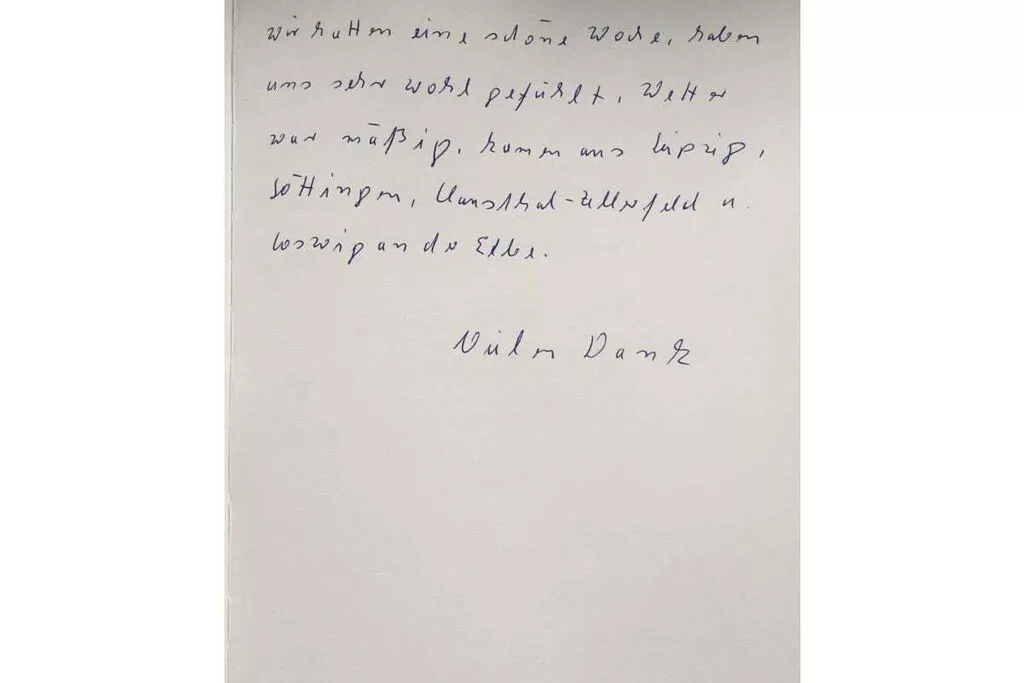 wir hatten eine schöne Woche, haben
uns sehr wohl gefühlt, Wetter
war mäßig, kamen aus Leipzig,
Göttingen, Clausthal-Zellerfeld u.
Coswig an der Elbe.
Vielen Dank